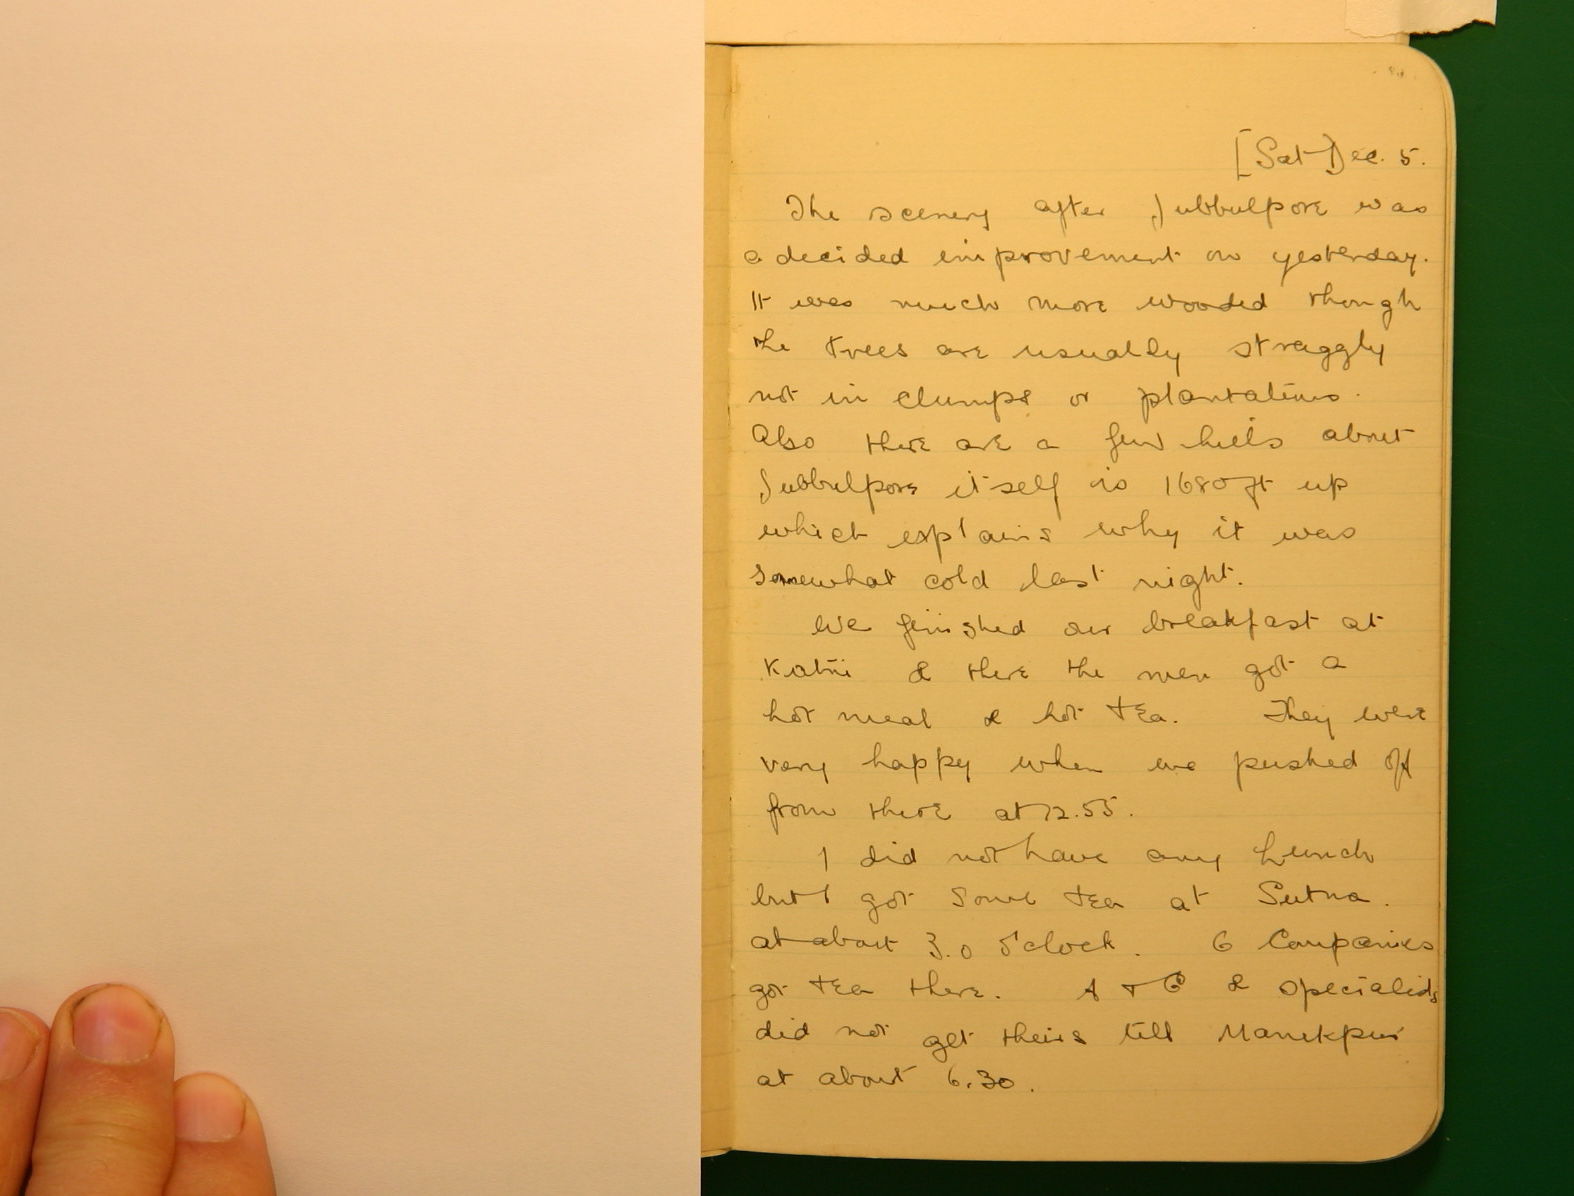 [Sat Dec. 5.
The scenery after Jubbulpore was
a decided improvement on yesterday.
It was much more wooded though
the trees are usually straggly
not in clumps or plantations.
Also there are a few hills about
Jubbulpore itself is 1680 ft up
which explains why it was
somewhat cold last night.
We finished our breakfast at
Katni & there the men got a
hot meal & hot tea. They were
very happy when we pushed off
from there at 12.55.
I did not have any lunch
but I got some tea at Sutna.
at about 3.0 o'clock. 6 Companies
got tea there. A + C & specialists
did not get theirs till Manikpur
at about 6.30.